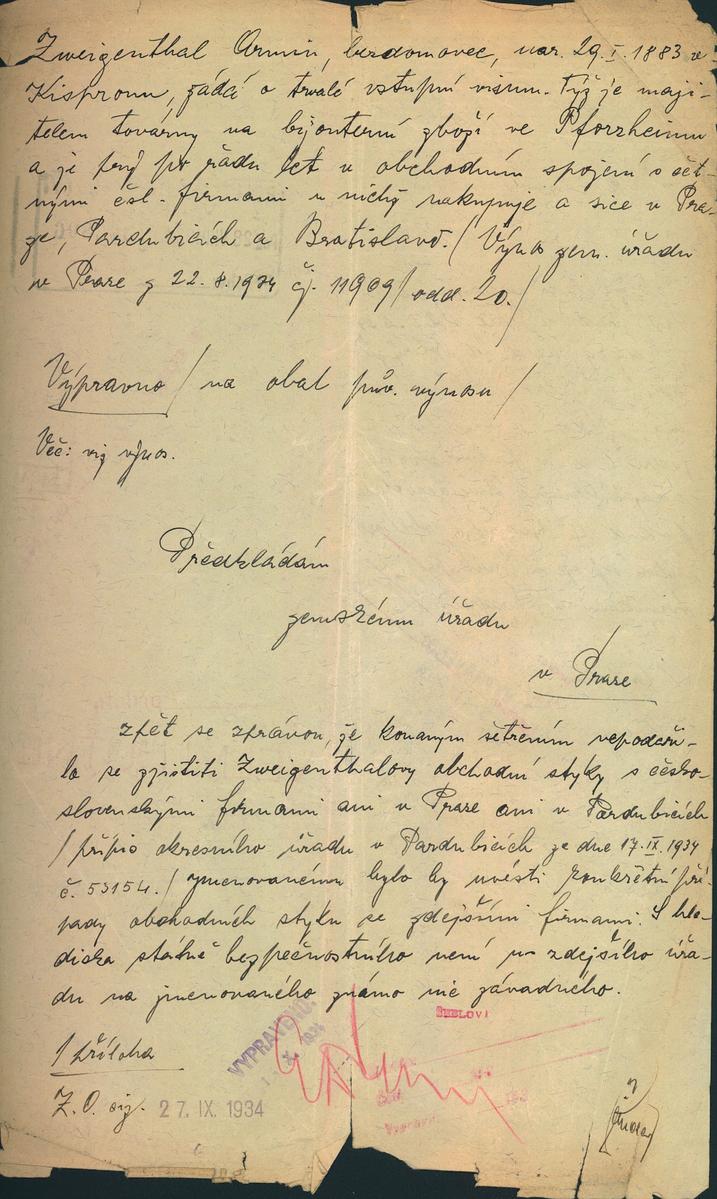 Zweigenthal Armin, bezdomovec, nar. 29.I.1883 v
Kispronu, žádá o trvalé vstupní visum. Týž je maji-
telem továrny na bijouterní zboží ve Pforzheimu
a je prý po řadu let v obchodním spojení s čet-
nými čsl. firmami u nichž nakupuje a sice v Pra-
ze, Pardubicích a Bratislavě. / Výnos zem. úřadu
v Praze z 22.8.1934 čj. 11969/odd. 20./
Výpravno / na obal pův. výnosu /
Věc: viz výnos.
Předkládám
zemskému úřadu
v Praze
zpět se zprávou, že konaným šetřením nepodaři-
lo se zjistiti Zweigenthalovy obchodní styky s česko-
slovenskými firmami ani v Praze ani v Pardubicích
/přípis okresního úřadu v Pardubicích ze dne 17.IX.1934
č. 53154./ Jmenovanému bylo by uvésti konkrétní pří-
pady obchodních styků se zdejšími firmami. S hle-
diska státně bezpečnostního není u zdejšího úřa-
du na jmenovaného známo nic závadného.
1 příloha
VYPRAVENO
Z.O. sig. 27. IX. 1934